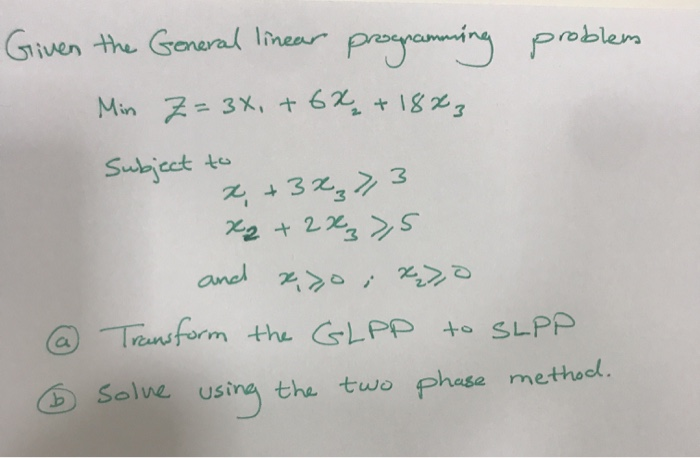 Given the General linear programming problem
Min Z = 3x₁ + 6x₂ + 18x₃
Subject to
x₁ + 3x₃ ⩾ 3
x₂ + 2x₃ ⩾ 5
and x₁ ⩾ 0 ; x₂ ⩾ 0
ⓐ Transform the GLPP to SLPP
ⓑ Solve using the two phase method.